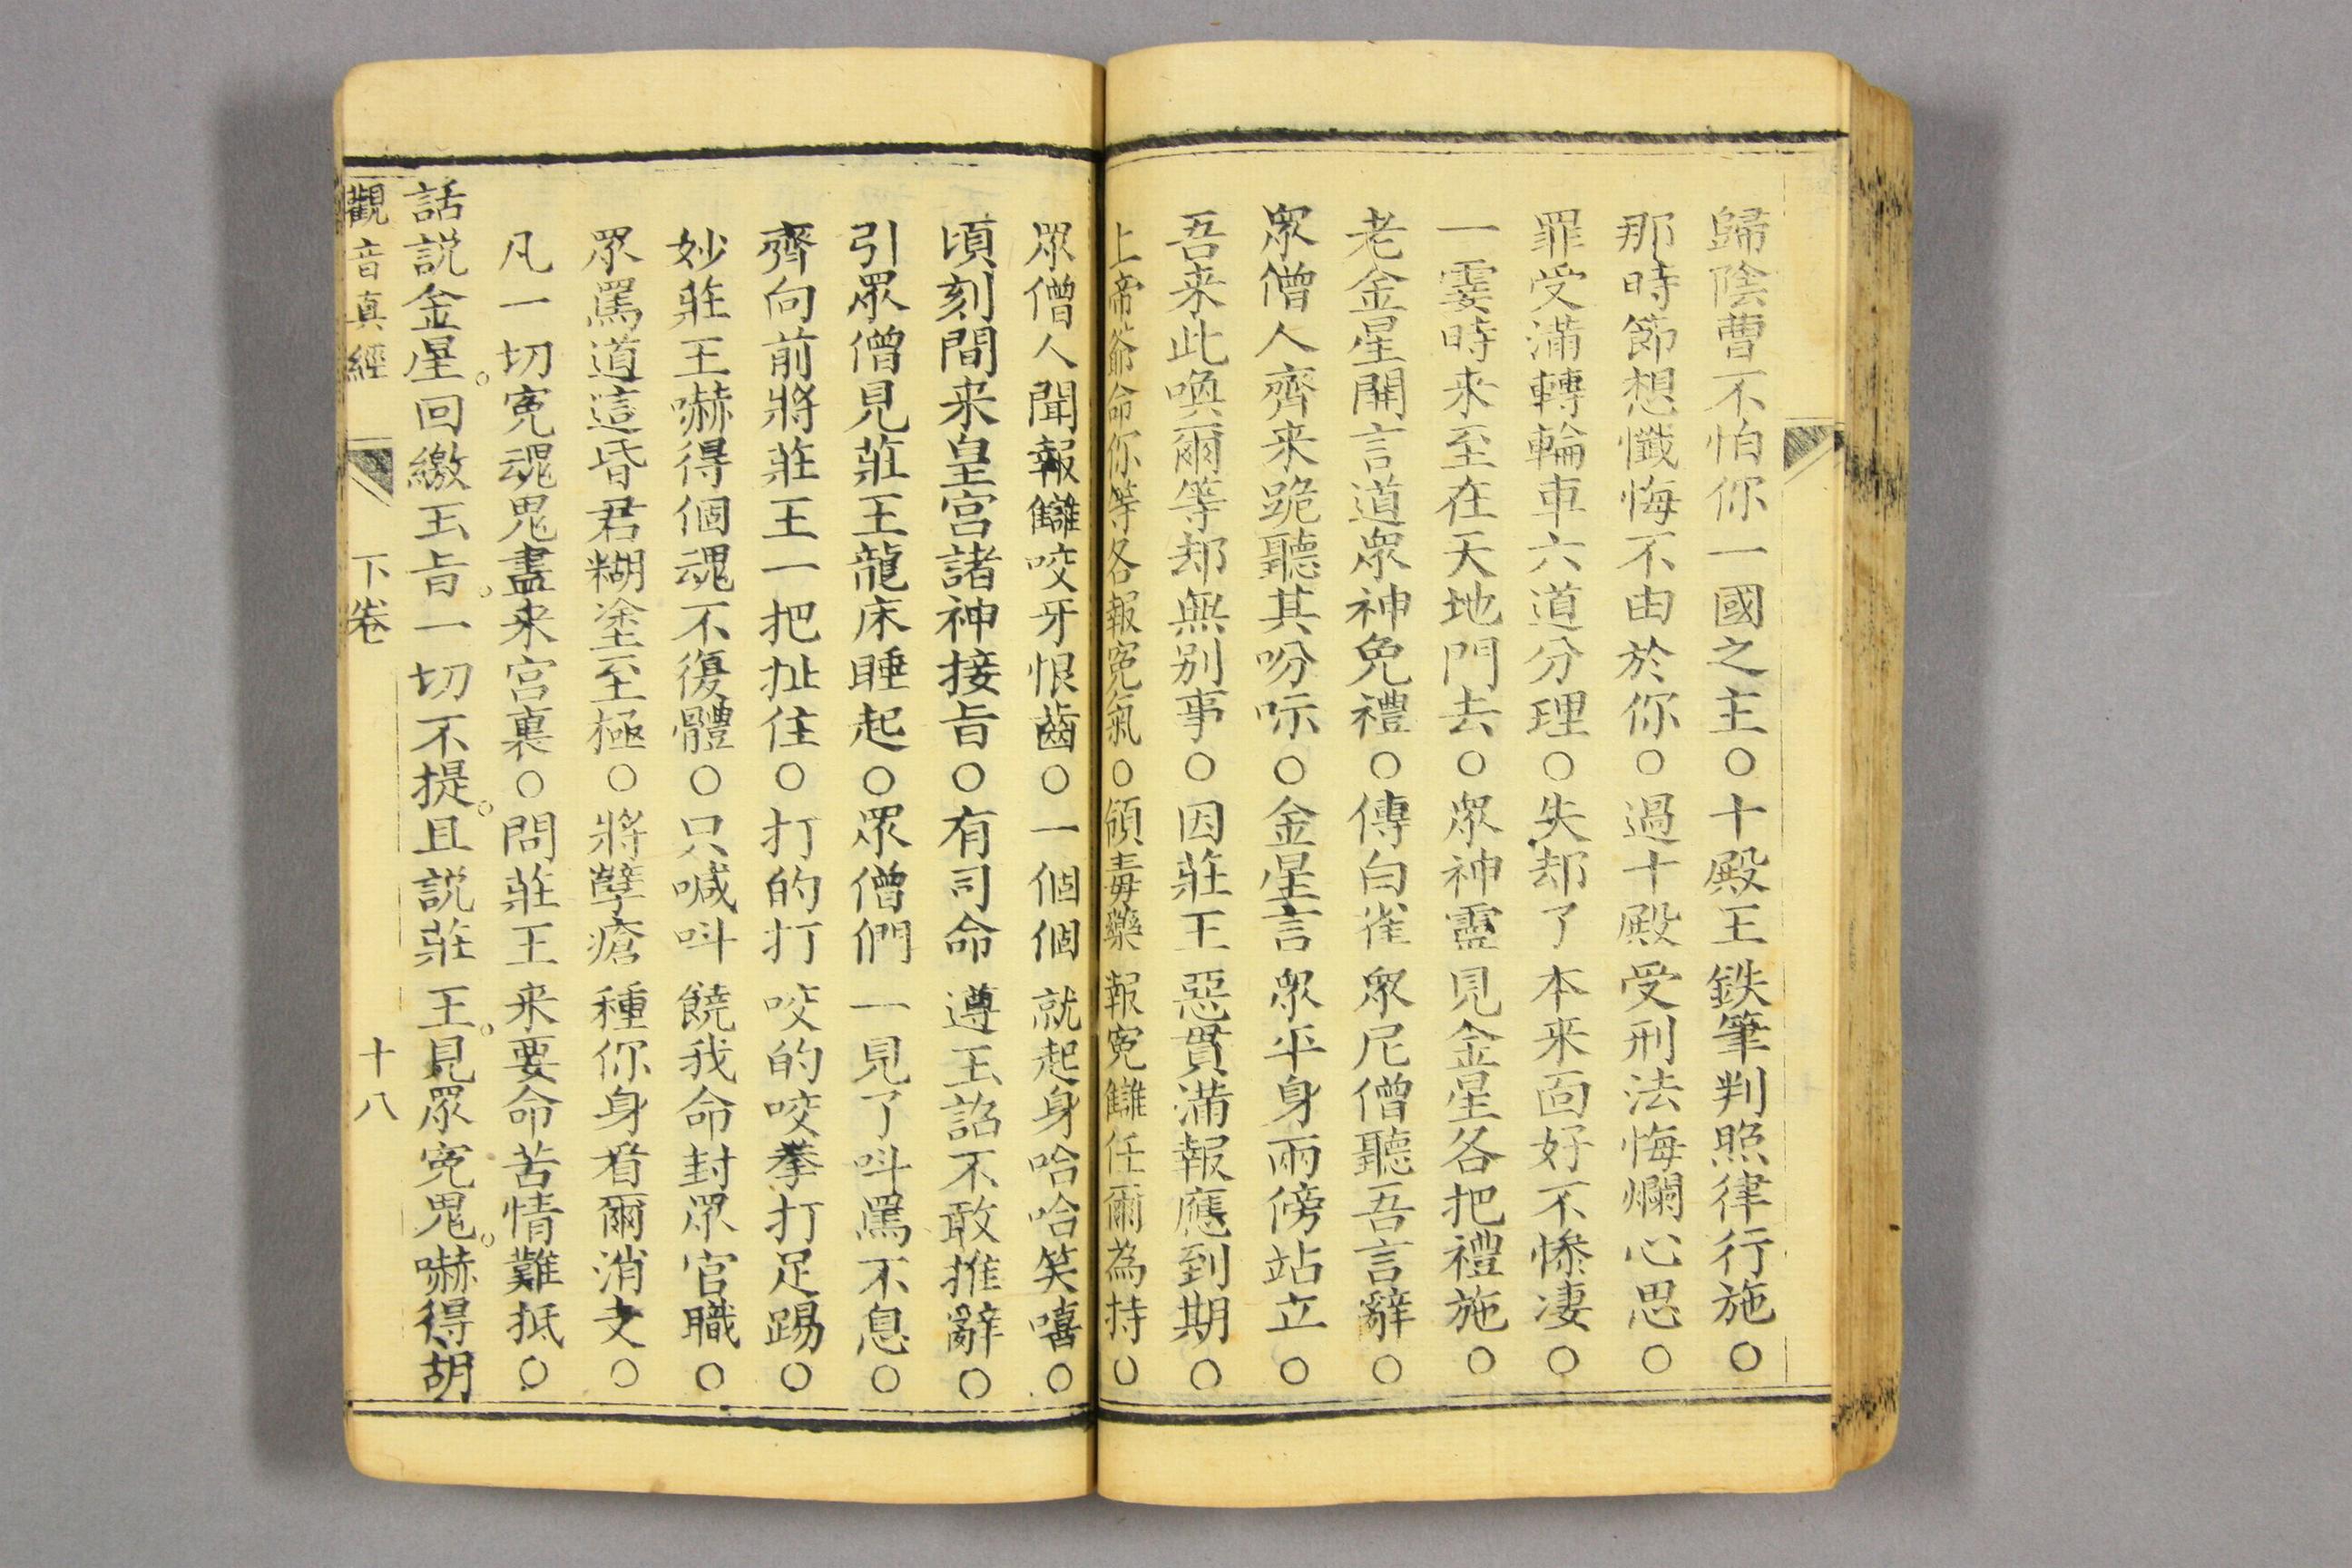 歸陰曹不怕你一國之主○十殿王鉄筆判照律行施○
那時節想懺悔不由於你○過十殿受刑法悔爛心思○
罪受滿轉輪車六道分理○失却了本来面好不慘凄○
一霎時来至在天地門去○眾神靈見金星各把禮施○
老金星開言道眾神免禮○傳白雀眾尼僧聽吾言辭○
眾僧人齊来跪聽其吩咐○金星言眾平身兩傍站立○
吾来此喚爾等却無别事○因莊王惡貫滿報應到期○
上帝爺命你等各報寃氣○領毒藥報寃讎任爾為持○
眾僧人聞報讎咬牙恨齒○一個個就起身哈哈笑嘻○
頃刻間来皇宮諸神接旨○有司命遵玉詔不敢推辭○
引眾僧見莊王龍床睡起○眾僧們一見了呌罵不息○
齊向前將莊王一把扯住○打的打咬的咬拳打足踢○
妙莊王嚇得個魂不復體○只喊呌饒我命封眾官職○
眾罵道這昏君糊塗至極○將孽瘡種你身看爾消支○
凡一切寃魂鬼盡来宮裏○問莊王来要命苦情難抵○
話説金星○回繳玉旨○一切不提○且説莊王○見眾寃鬼○嚇得胡
觀音真經 下卷 十八